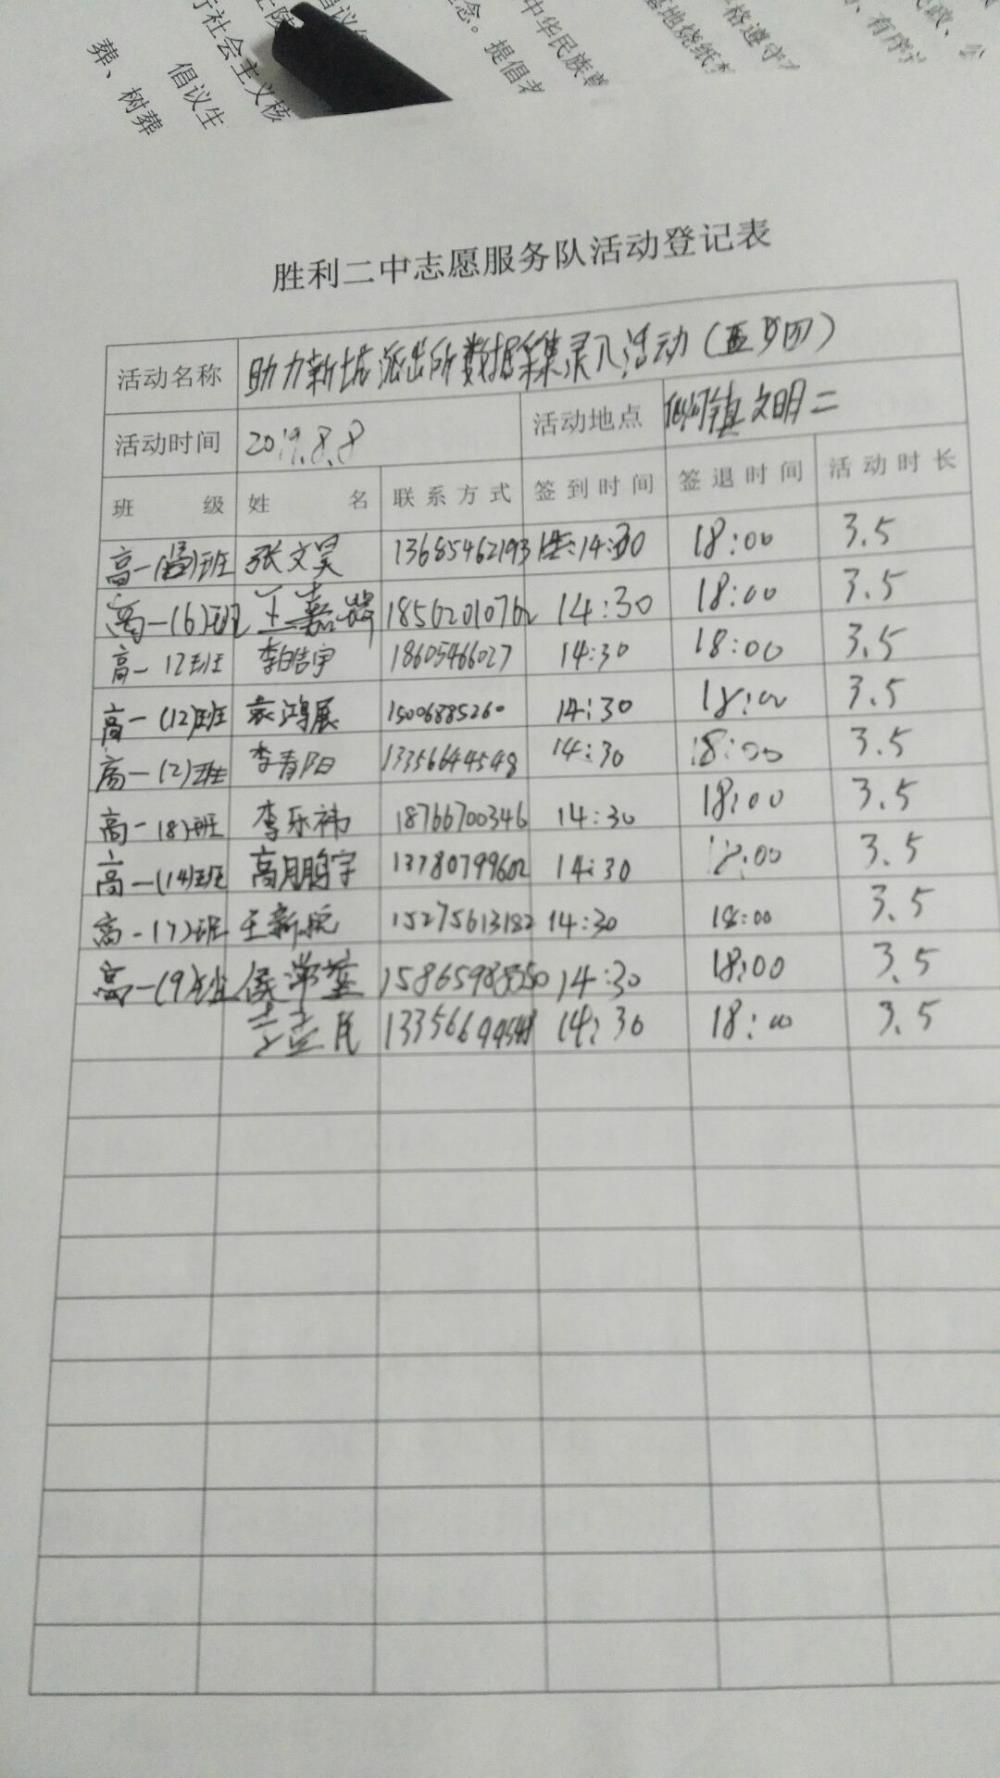 行社会主义核
倡议生
葬、树葬
念。提倡者
中华民族
墓地烧纸
格遵守
、有序
民政、公
胜利二中志愿服务队活动登记表
活动名称 助力新城派出所数据采集录入活动(
活动时间 2019.8.8 活动地点 镇文明二
班级 姓名 联系方式 签到时间 签退时间 活动时长
高一 班 张文昊 13685462193 14:30 18:00 3.5
高一(6)班 王嘉 1850201076 14:30 18:00 3.5
高一12班 李皓宇 18605466027 14:30 18:00 3.5
高一(12)班 袁鸿展 15006885260 14:30 18:00 3.5
高一(2)班 李青阳 13356644548 14:30 18:00 3.5
高一(8)班 李乐祎 18766700346 14:30 18:00 3.5
高一(14)班 高鹏宇 13780799602 14:30 18:00 3.5
高一(7)班 王新 15275613182 14:30 18:00 3.5
高一(9)班 侯 15865988350 14:30 18:00 3.5
133566 14:30 18:00 3.5